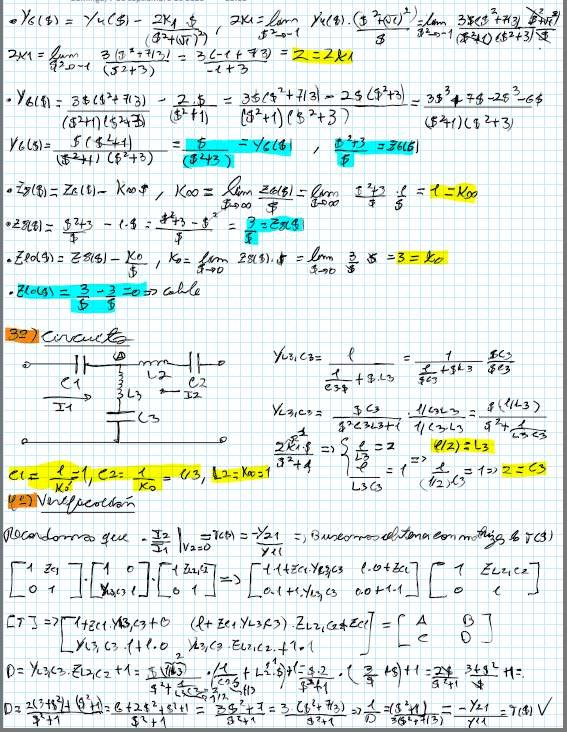 • Y6($) = Y4($) - 2K1 $ / ($²+(√1)²) , 2K1 = lim $²→-1 Y4($).($²+(√1)²)/$ = lim $²→-1 3$($²+7/3) ($²+1) / ($²+1)($²+3) $
2K1 = lim $²→-1 3($²+7/3) / ($²+3) = 3(-1+7/3) / -1+3 = 2 = 2K1
• Y6($) = 3$($²+7/3) / ($²+1)($²+3) - 2.$ / ($²+1) = 3$($²+7/3) - 2$($²+3) / ($²+1)($²+3) = 3$³+7$-2$³-6$ / ($²+1)($²+3)
Y6($) = $($²+1) / ($²+1)($²+3) = $ / ($²+3) = Y6($) , $²+3 / $ = Z6($)
• Z8($) = Z6($) - K∞$ , K∞ = lim $→∞ Z6($)/$ = lim $→∞ $²+3/$ . 1/$ = 1 = K∞
• Z8($) = $²+3/$ - 1.$ = $²+3-$²/$ = 3/$ = Z8($)
• Z10($) = Z8($) - K0/$ , K0 = lim $→0 Z8($).$ = lim $→0 3/$ $ = 3 = K0
• Z10($) = 3/$ - 3/$ = 0 =>
3º) Circuito
C1 A L2 C2
I1 L3 I2
C3
YL3,C3 = 1 / (1/$C3 + $.L3) = 1 / (1/$C3 + $L3) $C3/$C3
YL3,C3 = $C3 / $²C3L3+1 . 1/C3L3 / 1/C3.L3 = $(1/L3) / $² + 1/L3C3
2K1.$ / $²+1 => { 1/L3 = 2 1/L3C3 = 1 => (1/2) = L3 1/(1/2)C3 = 1 => 2 = C3
C1 = 1/K0 = 1, C2 = 1/K0 = 1/3, L2 = K∞ = 1
4º) Verificación
Recordamos que -I2/I1 |V2=0 = T($) = -Y21/Y11 => Buscamos obtener con matriz la T($)
[1 ZC1 0 1] . [1 0 YL3,C3 1] . [1 ZL2,C2 0 1] => [1.1+ZC1.YL3,C3 1.0+ZC1 0.1+1.YL3,C3 0.0+1.1] [1 ZL2,C2 0 1]
[T] => [1+ZC1.YL3,C3+0 (1+ZC1 YL3,C3).ZL2,C2+ZC1 YL3,C3.1+1.0 YL3,C3.ZL2,C2+1.1] = [A B C D]
D = YL3,C3.ZL2,C2+1 = $(1/L3) / $²+1/L3C3 . (1/C2$ + L2.$)+1 = $.2/$²+1 . (3/$+$)+1 = 2$/$²+1 . 3+$²/$ +1 =
D = 2(3+$²)+($²+1) / $²+1 = 6+2$²+$²+1 / $²+1 = 3$²+7 / $²+1 = 3.($²+7/3) / $²+1 => 1/D = ($²+1) / 3($²+7/3) = -Y21/Y11 = T($) √